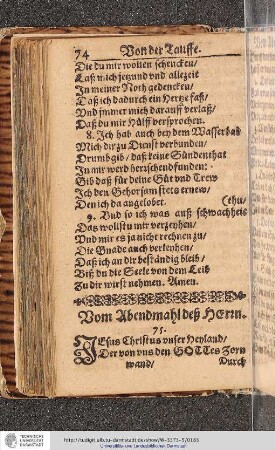 74 Von der Tauffe.
Die du mir wollen schencken/
Laß mich jezund vnd allezeit
In meiner Noth gedencken/
Daß ich dadurch ein Hertze faß/
Vnd immer mich darauff verlaß/
Daß du mir Hülff versprochen.
8. Ich hab auch bey dem Wasserbad
Mich dir zu Dienst verbunden/
Drumb gib/ daß keine Sündenthat
In mir werd herrschend funden:
Gib daß für deine Güt vnd Trew
Ich den Gehorsam stets ernew/
Den ich da angelobet. (thu/
9. Vnd so ich was auß schwachheit
Das wollstu mir verzeyhen/
Vnd mir es ja nicht rechnen zu/
Die Gnade auch verleyhen/
Daß ich an dir beständig bleib/
Biß du die Seele von dem Leib
Zu dir wirst nehmen. Amen.
Vom Abendmahl deß HErrn.
75.
JEsus Christus vnser Heyland/
Der von vns den GOTTes Zorn
wand/ Durch
TECHNISCHE
UNIVERSITÄT
DARMSTADT
Universitäts- und Landesbibliothek Darmstadt